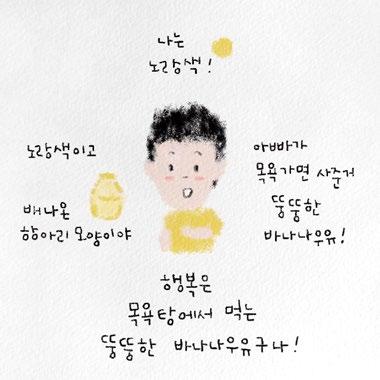 나는
노랑색!
노랑색이고
배나온
항아리 모양이야
아빠가
목욕가면 사준거
뚱뚱한
바나나우유!
행복은
목욕탕에서 먹는
뚱뚱한 바나나우유구나!